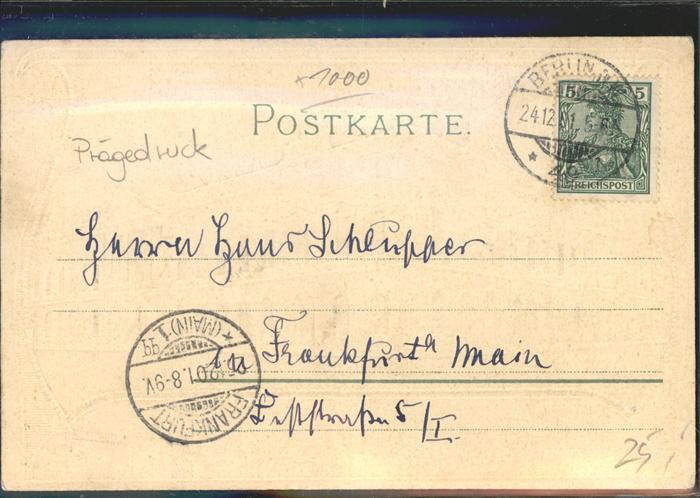 +1000
POSTKARTE.
BERLIN
24.12
5 5
REICHSPOST
Prägedruck
Herrn Hans Schlupper
in Frankfurt a Main
5/I.
FRANKFURT
.01.8-9V.
* (MAIN)-1.
25,